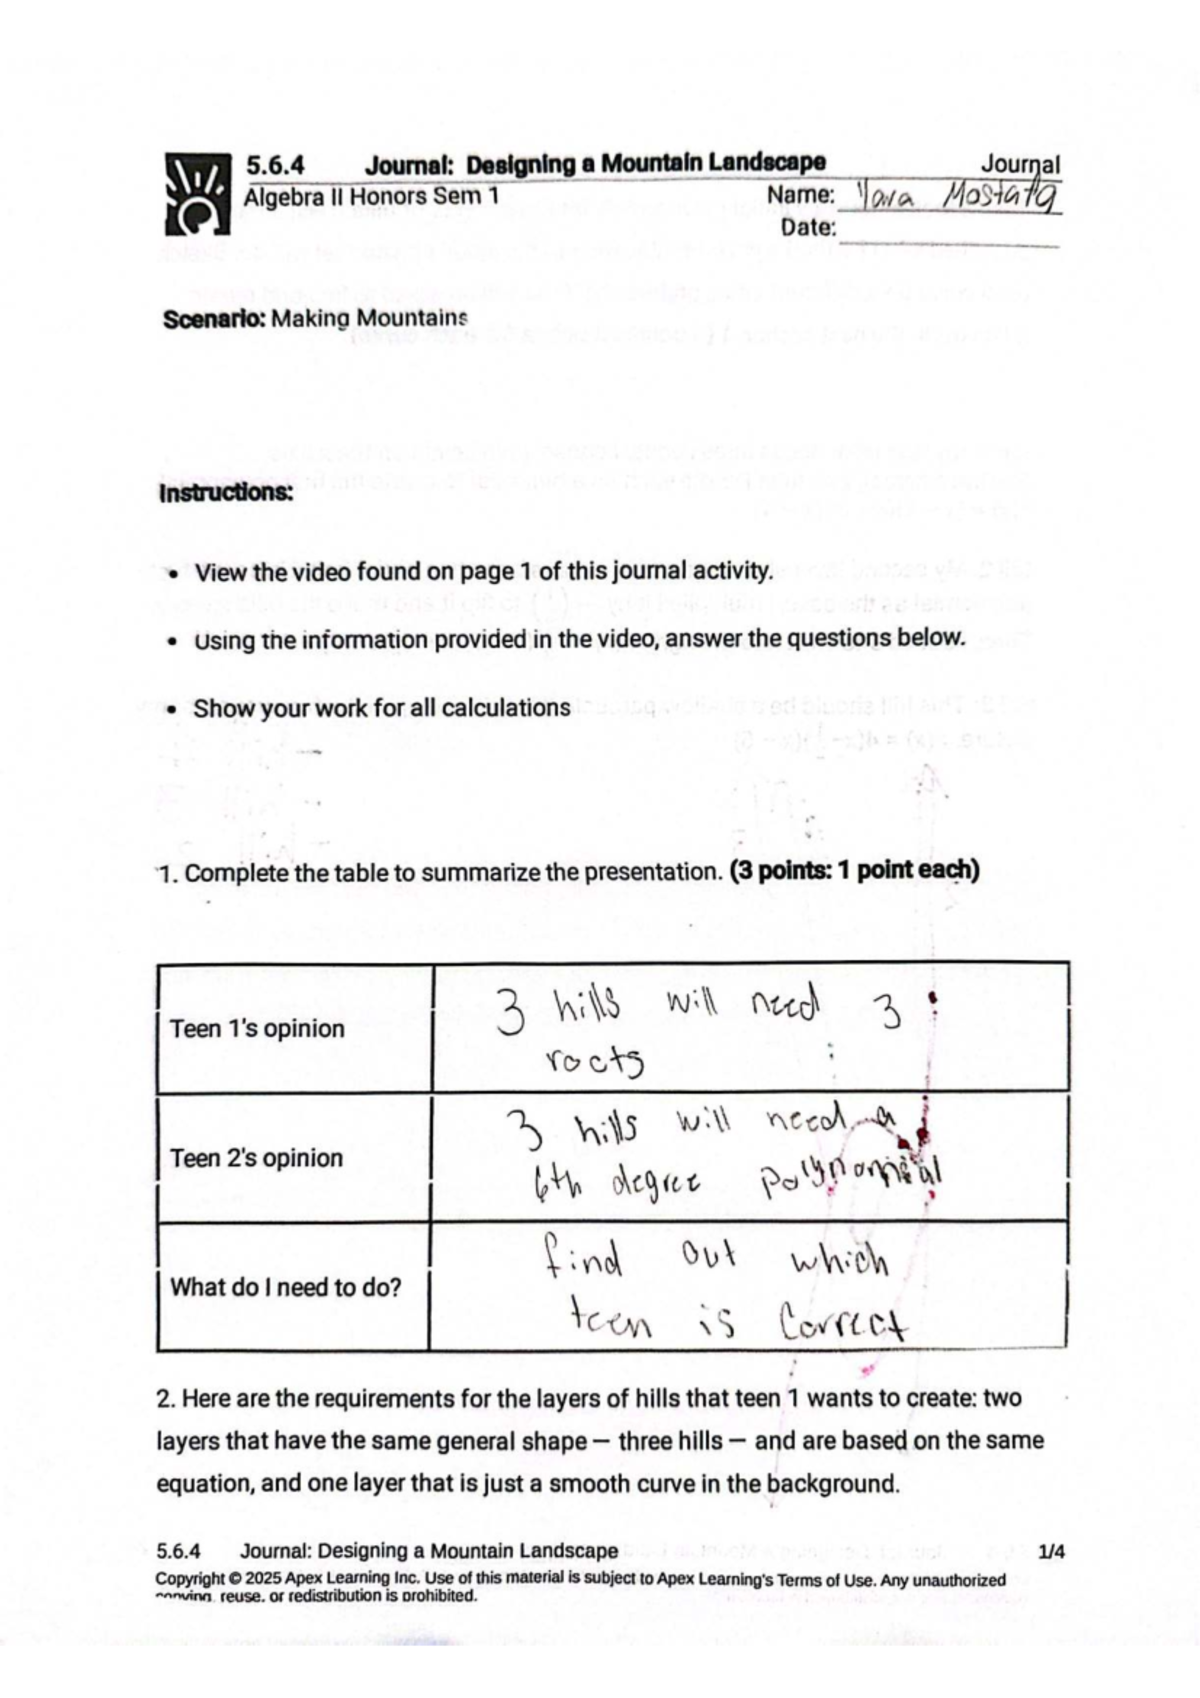 5.6.4 Journal: Designing a Mountain Landscape Journal
Algebra II Honors Sem 1 Name: Yara Mostafa
Date:
Scenario: Making Mountains
Instructions:
• View the video found on page 1 of this journal activity.
• Using the information provided in the video, answer the questions below.
• Show your work for all calculations
1. Complete the table to summarize the presentation. (3 points: 1 point each)
3 hills will need 3
Teen 1's opinion
roots
3 hills will need a
Teen 2's opinion
6th degree polynomial
find out which
What do I need to do?
teen is correct
2. Here are the requirements for the layers of hills that teen 1 wants to create: two
layers that have the same general shape — three hills — and are based on the same
equation, and one layer that is just a smooth curve in the background.
5.6.4 Journal: Designing a Mountain Landscape 1/4
Copyright © 2025 Apex Learning Inc. Use of this material is subject to Apex Learning's Terms of Use. Any unauthorized
copying, reuse, or redistribution is prohibited.